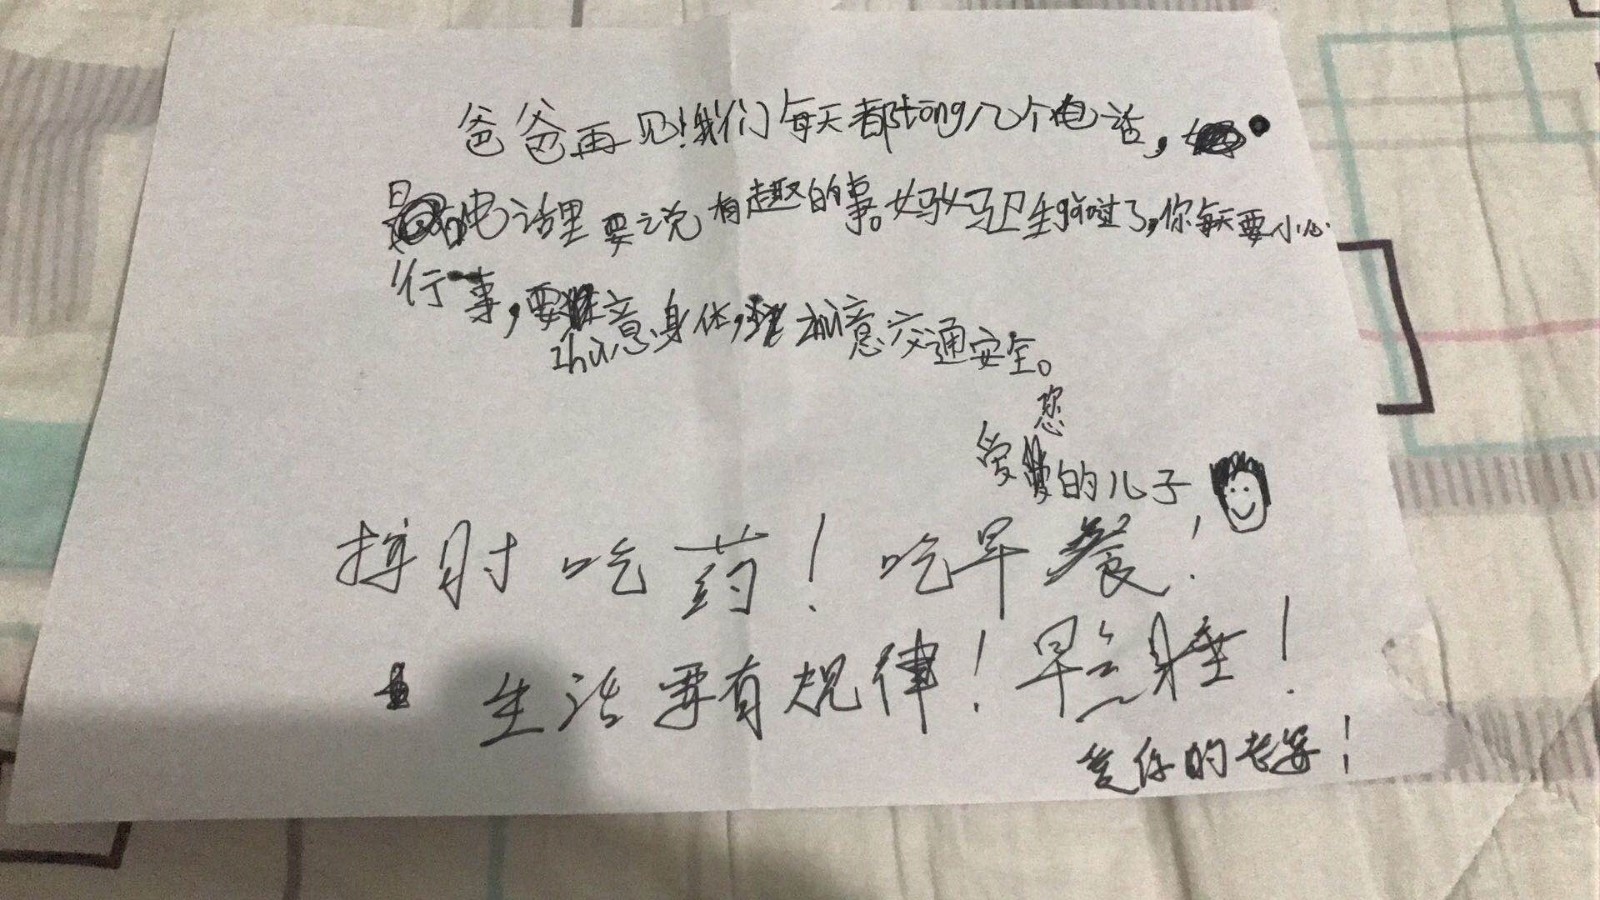 爸爸再见!我们每天都tōng几个电话,
电话里要说有趣的事。妈妈卫生搞过了,你每天要小心
行事,要zhù意身体,zhù意交通安全。
爱您的儿子
按时吃药!吃早餐!
生活要有规律!早点睡!
爱你的老婆!